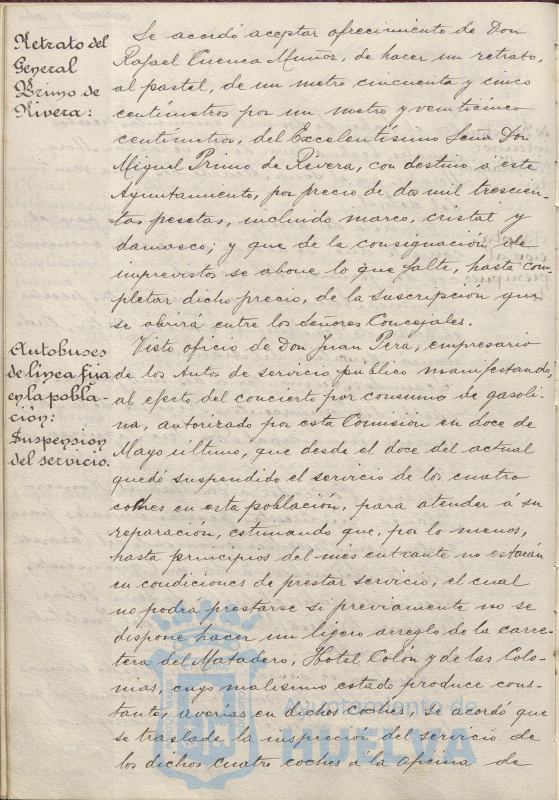 Retrato del
General
Primo de
Rivera:
Se acordó aceptar ofrecimiento de Don
Rafael Cuenca Muñoz, de hacer un retrato,
al pastel, de un metro cincuenta y cinco
centímetros por un metro y veinticinco
centímetros, del Excelentísimo Señor Don
Miguel Primo de Rivera, con destino á este
Ayuntamiento, por precio de dos mil trescien-
tas pesetas, incluido marco, cristal y
damasco; y que de la consignación de
imprevistos se abone lo que falte, hasta com-
pletar dicho precio, de la suscripción que
se abrirá entre los Señores Concejales.
Autobuses
de linea fija
en la pobla-
ción:
Suspension
del servicio.
Visto oficio de Don Juan Pera, empresario
de los Autos de servicio publico manifestando,
al efecto del concierto por consumo de gasoli-
na, autorizado por esta Comisión en doce de
Mayo último, que desde el doce del actual
quedó suspendido el servicio de los cuatro
coches en esta población, para atender á su
reparación, estimando que, por lo menos,
hasta principios del mes entrante no estarán
en condiciones de prestar servicio, el cual
no podrá prestarse si previamente no se
dispone hacer un ligero arreglo de la carre-
tera del Matadero, Hotel Colón y de las Colo-
nias, cuyo malísimo estado produce cons-
tante, averías en dichos coches, se acordó que
se traslade la inspección del servicio de
los dichos cuatro coches á la oficina de
Ayuntamiento de
HUELVA